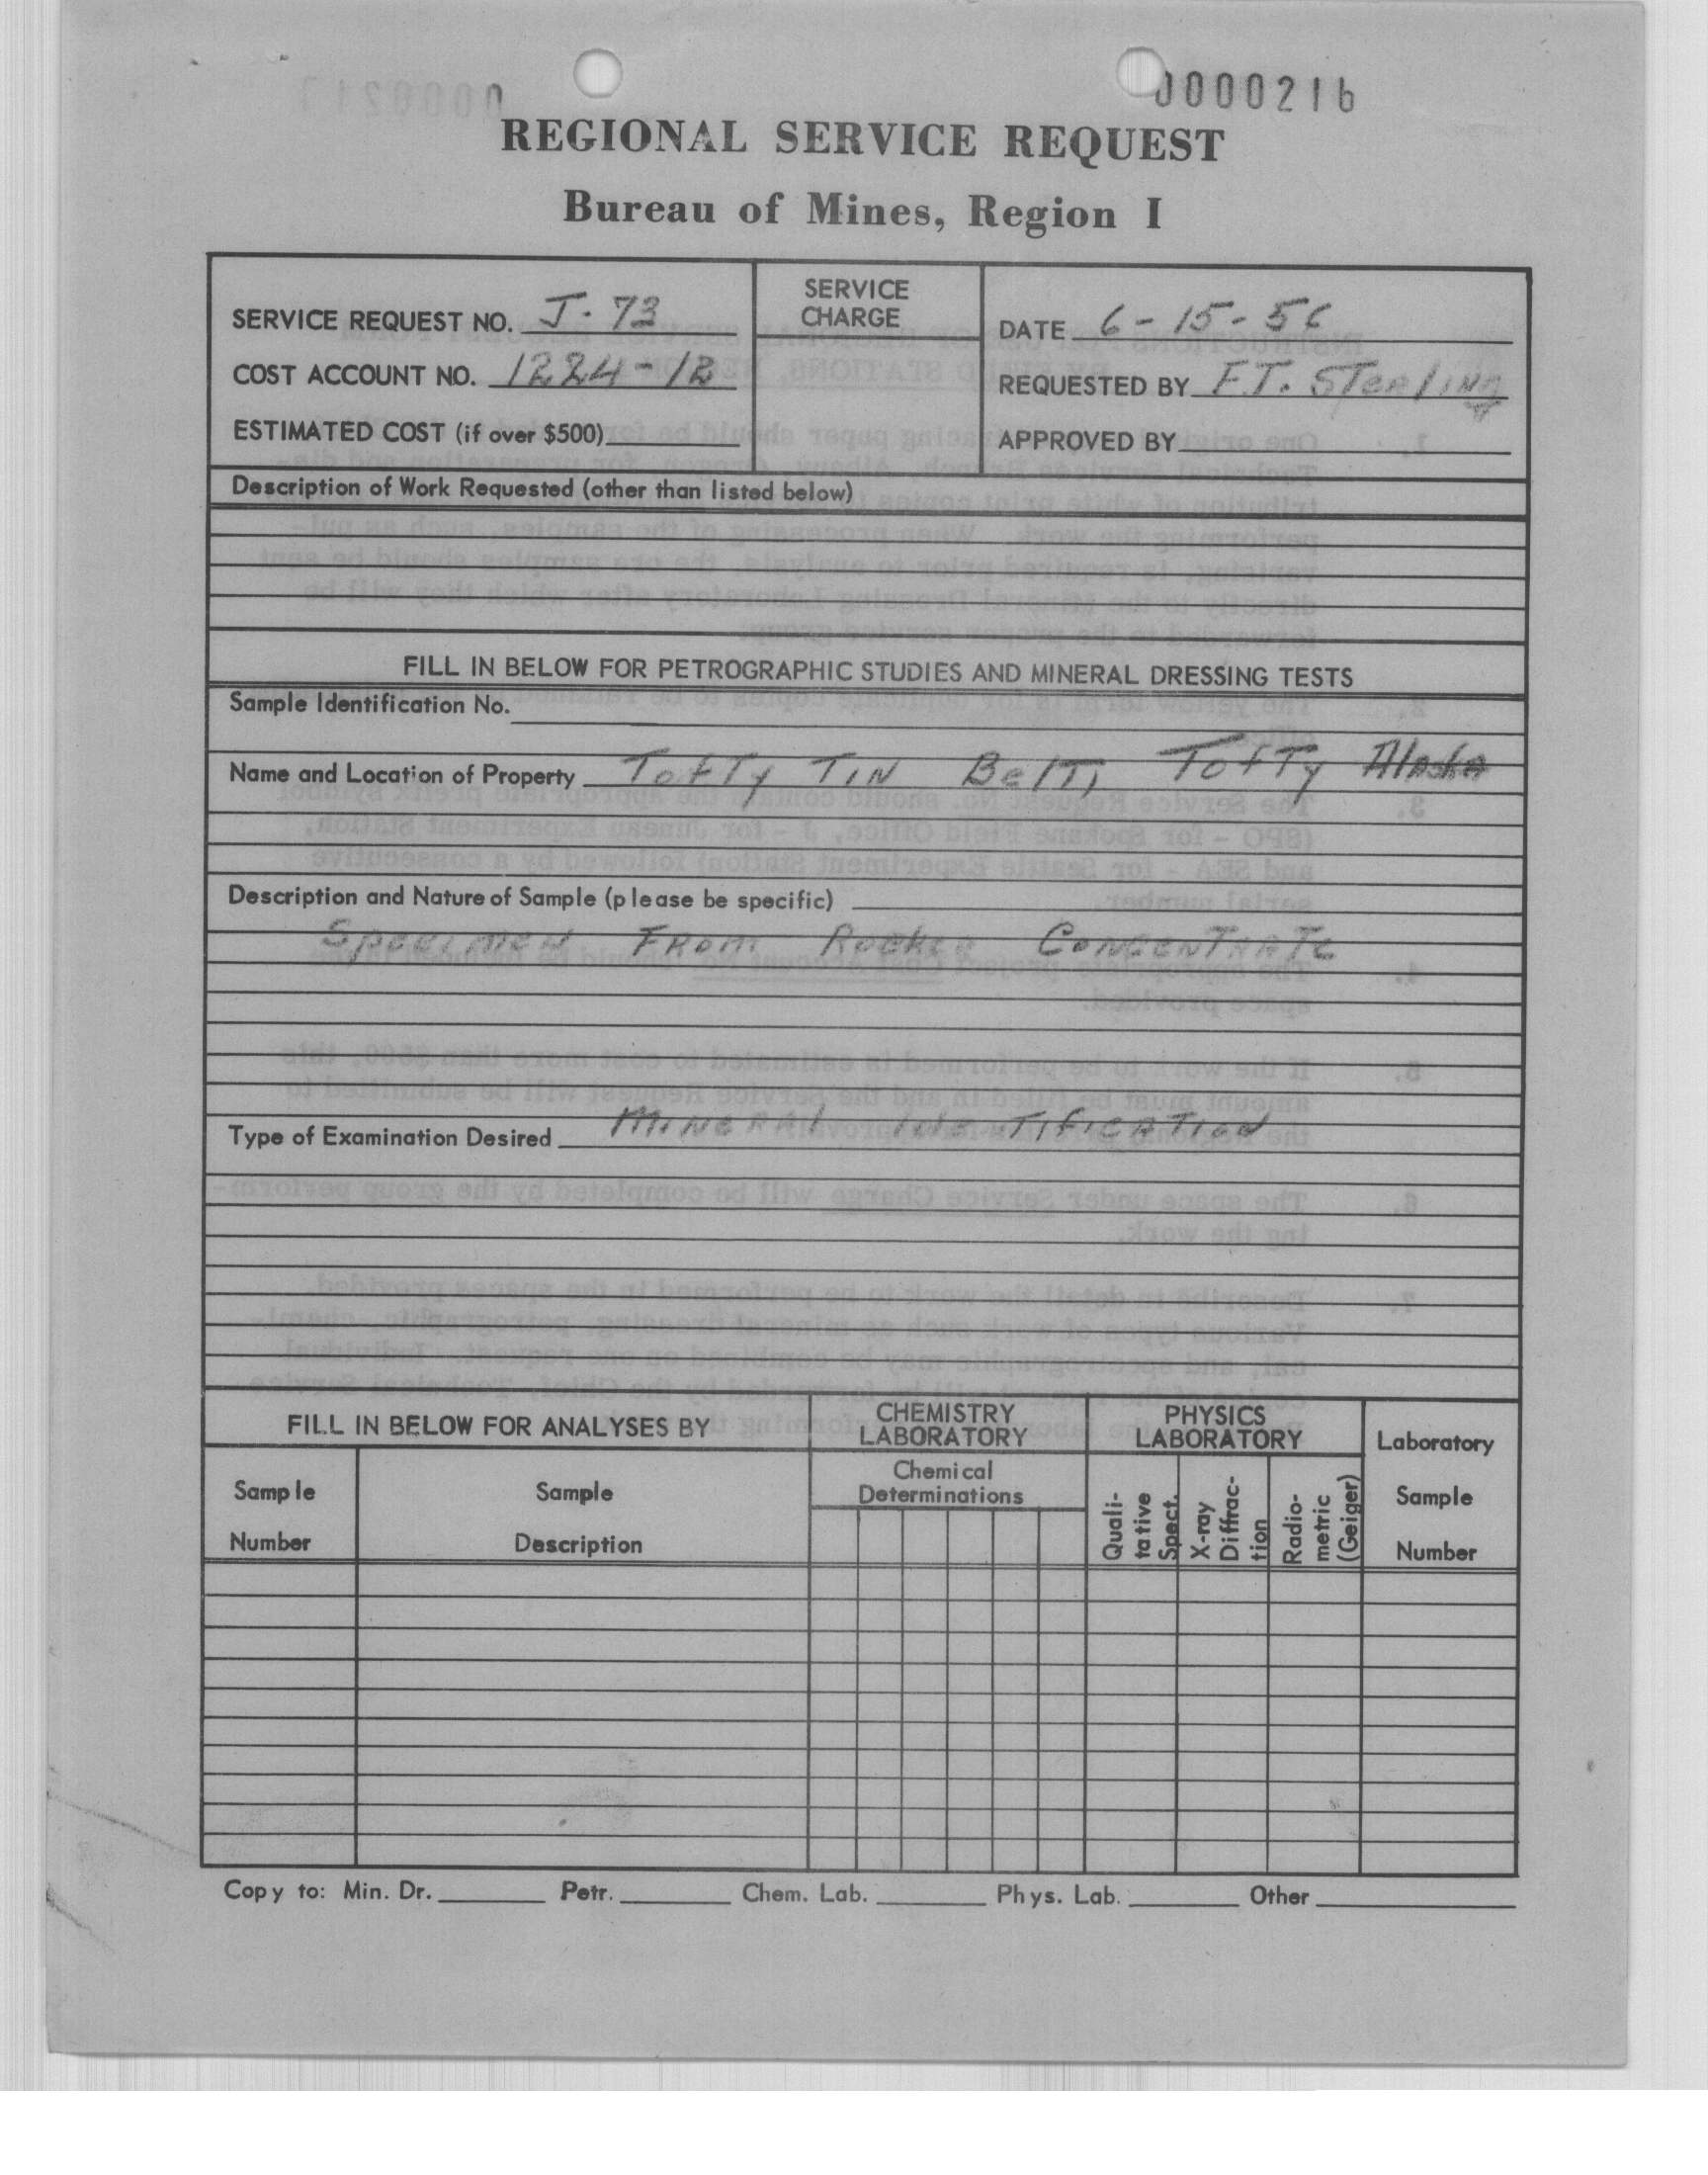 0000216
REGIONAL SERVICE REQUEST
Bureau of Mines, Region I
SERVICE REQUEST NO. J-73
COST ACCOUNT NO. 1224-12
ESTIMATED COST (if over $500)
SERVICE
CHARGE
DATE 6-15-56
REQUESTED BY F.T. Sterling
APPROVED BY
Description of Work Requested (other than listed below)
FILL IN BELOW FOR PETROGRAPHIC STUDIES AND MINERAL DRESSING TESTS
Sample Identification No.
Name and Location of Property Tofty Tin Belt, Tofty Alaska
Description and Nature of Sample (please be specific)
Specimen From Rocker Concentrate
Type of Examination Desired Mineral Identification
FILL IN BELOW FOR ANALYSES BY
CHEMISTRY
LABORATORY
PHYSICS
LABORATORY
Laboratory
Sample
Number
Sample
Number
Sample
Description
Chemical
Determinations
Quali-
tative
Spect.
X-ray
Diffrac-
tion
Radio-
metric
(Geiger)
Copy to: Min. Dr. Petr. Chem. Lab. Phys. Lab. Other